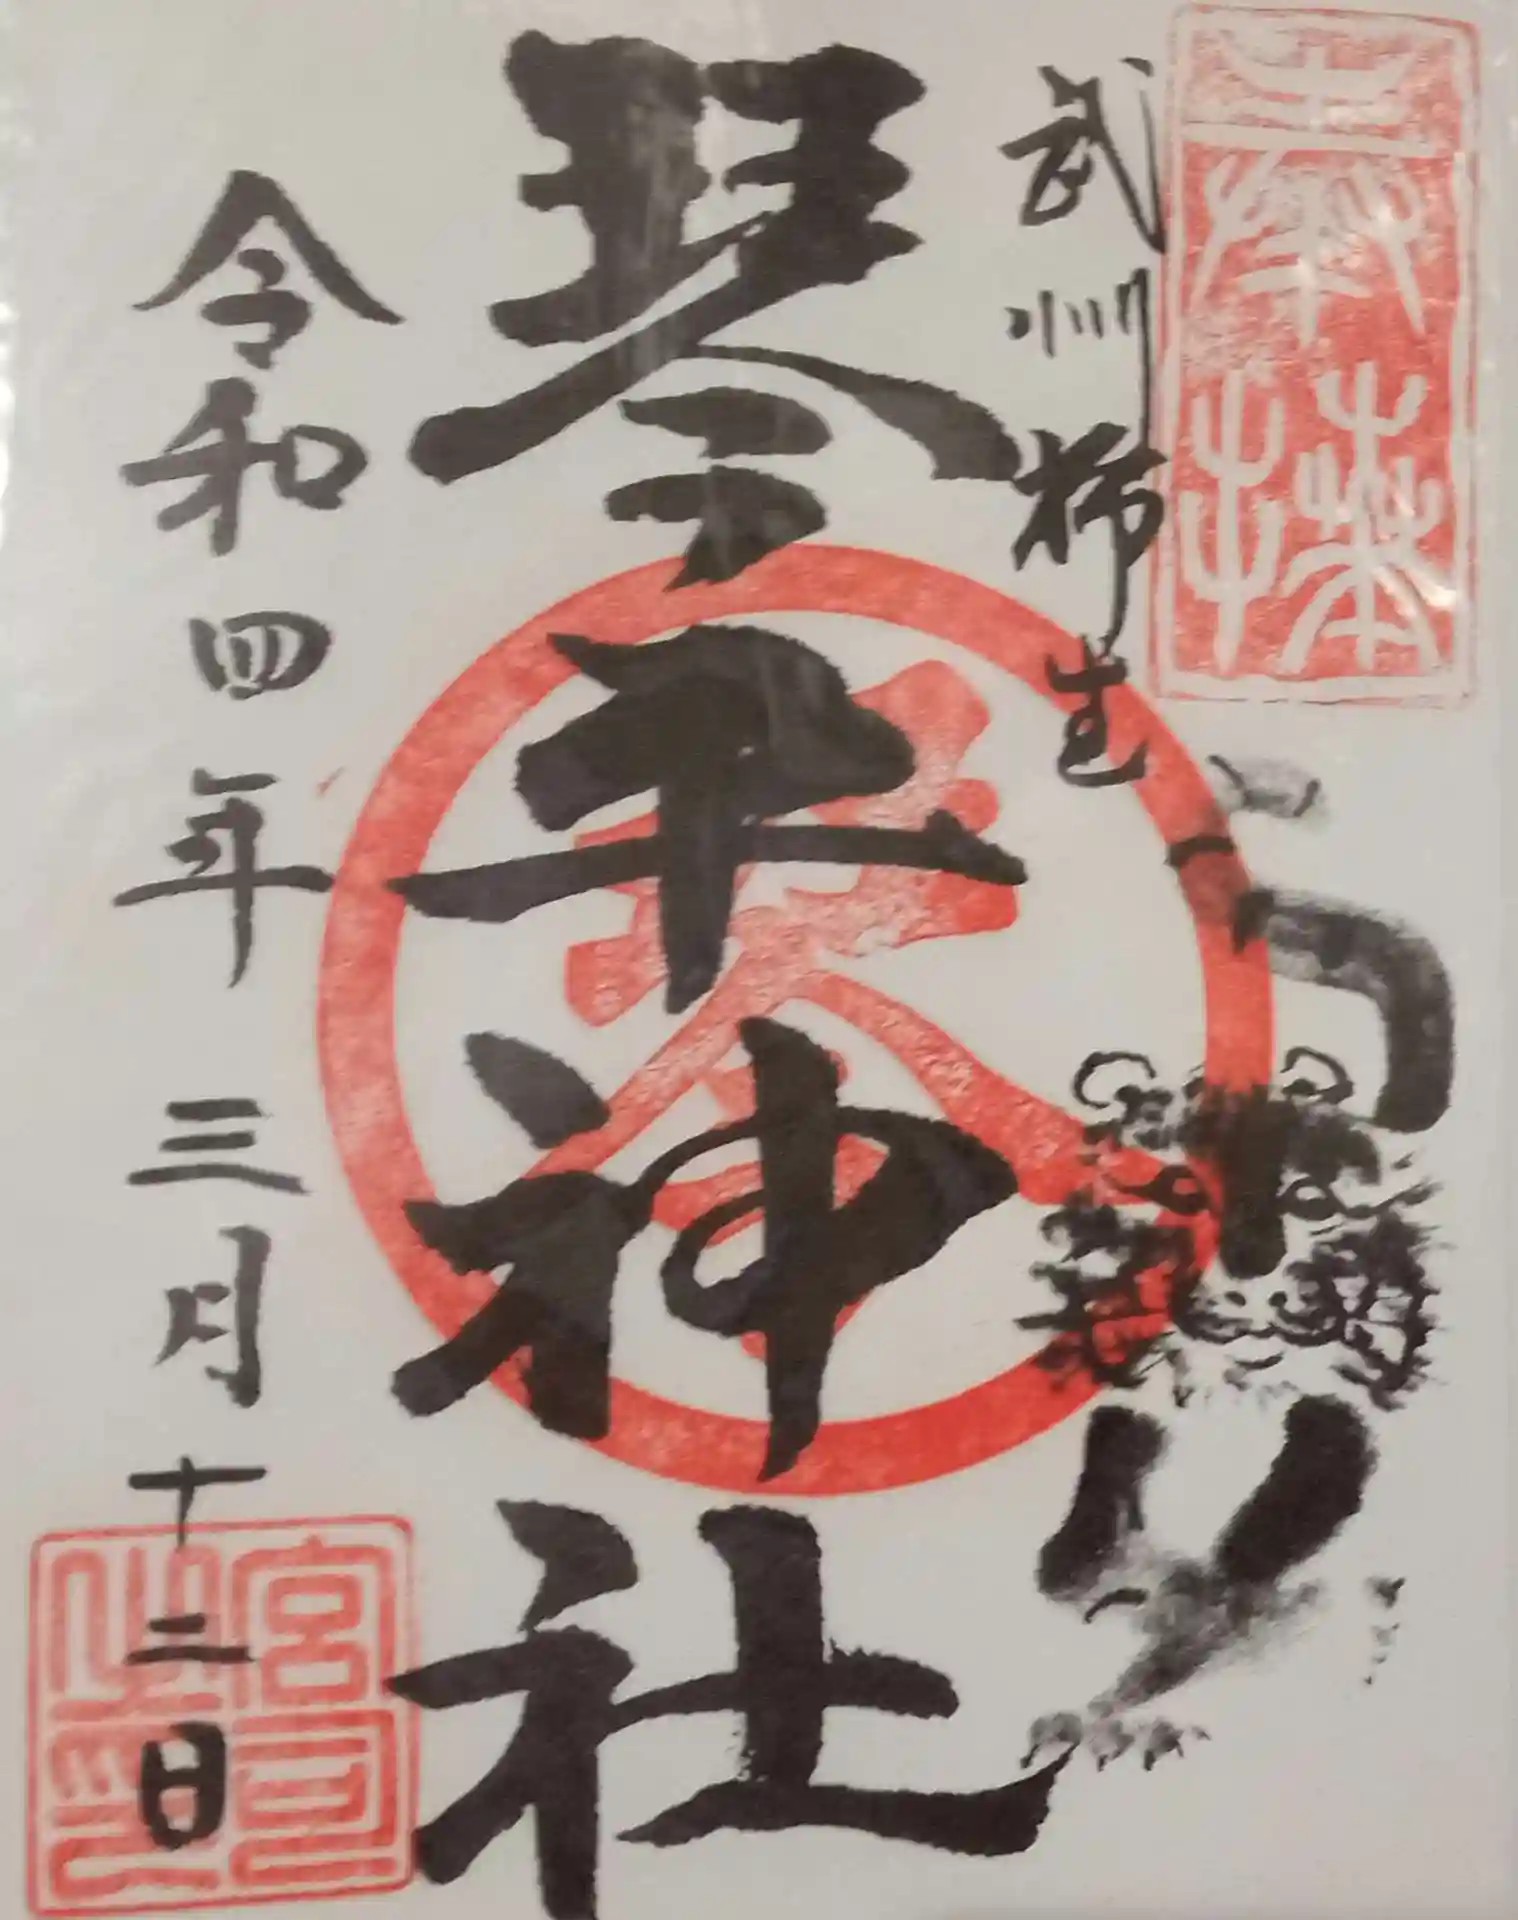 奉拝
武州柿生
琴平神社
令和四年三月十二日